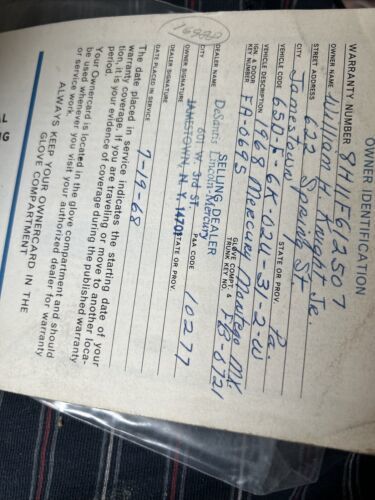 OWNER IDENTIFICATION
WARRANTY NUMBER 8H11F61257
OWNER NAME William H Knight Jr.
STREET ADDRESS 622 Spring St
CITY Jamestown STATE OR PROV. Pa.
VEHICLE CODE 65D-F-6A-024-3-2-W
VEHICLE DESCRIPTION 1968 Mercury Montego MX
IGN. & DOOR KEY NUMBER FA-0695 GLOVE COMPT. & TRUNK KEY NO. FB-0721
SELLING DEALER
DEALER NAME DeSantis Lincoln-Mercury
601 W. 3rd St
CITY JAMESTOWN, N. Y. 14701 STATE OR PROV.
DEALER SIGNATURE P&A CODE 10277
OWNER SIGNATURE
DATE PLACED IN SERVICE 7-19-68
The date placed in service indicates the starting date of your
warranty coverage. If you are traveling or move to another loca-
tion, it is your evidence of coverage during the published warranty
period.
Your Ownercard is located in the glove compartment and should
be used whenever you visit your authorized dealer for warranty
or service work.
ALWAYS KEEP YOUR OWNERCARD IN THE
GLOVE COMPARTMENT